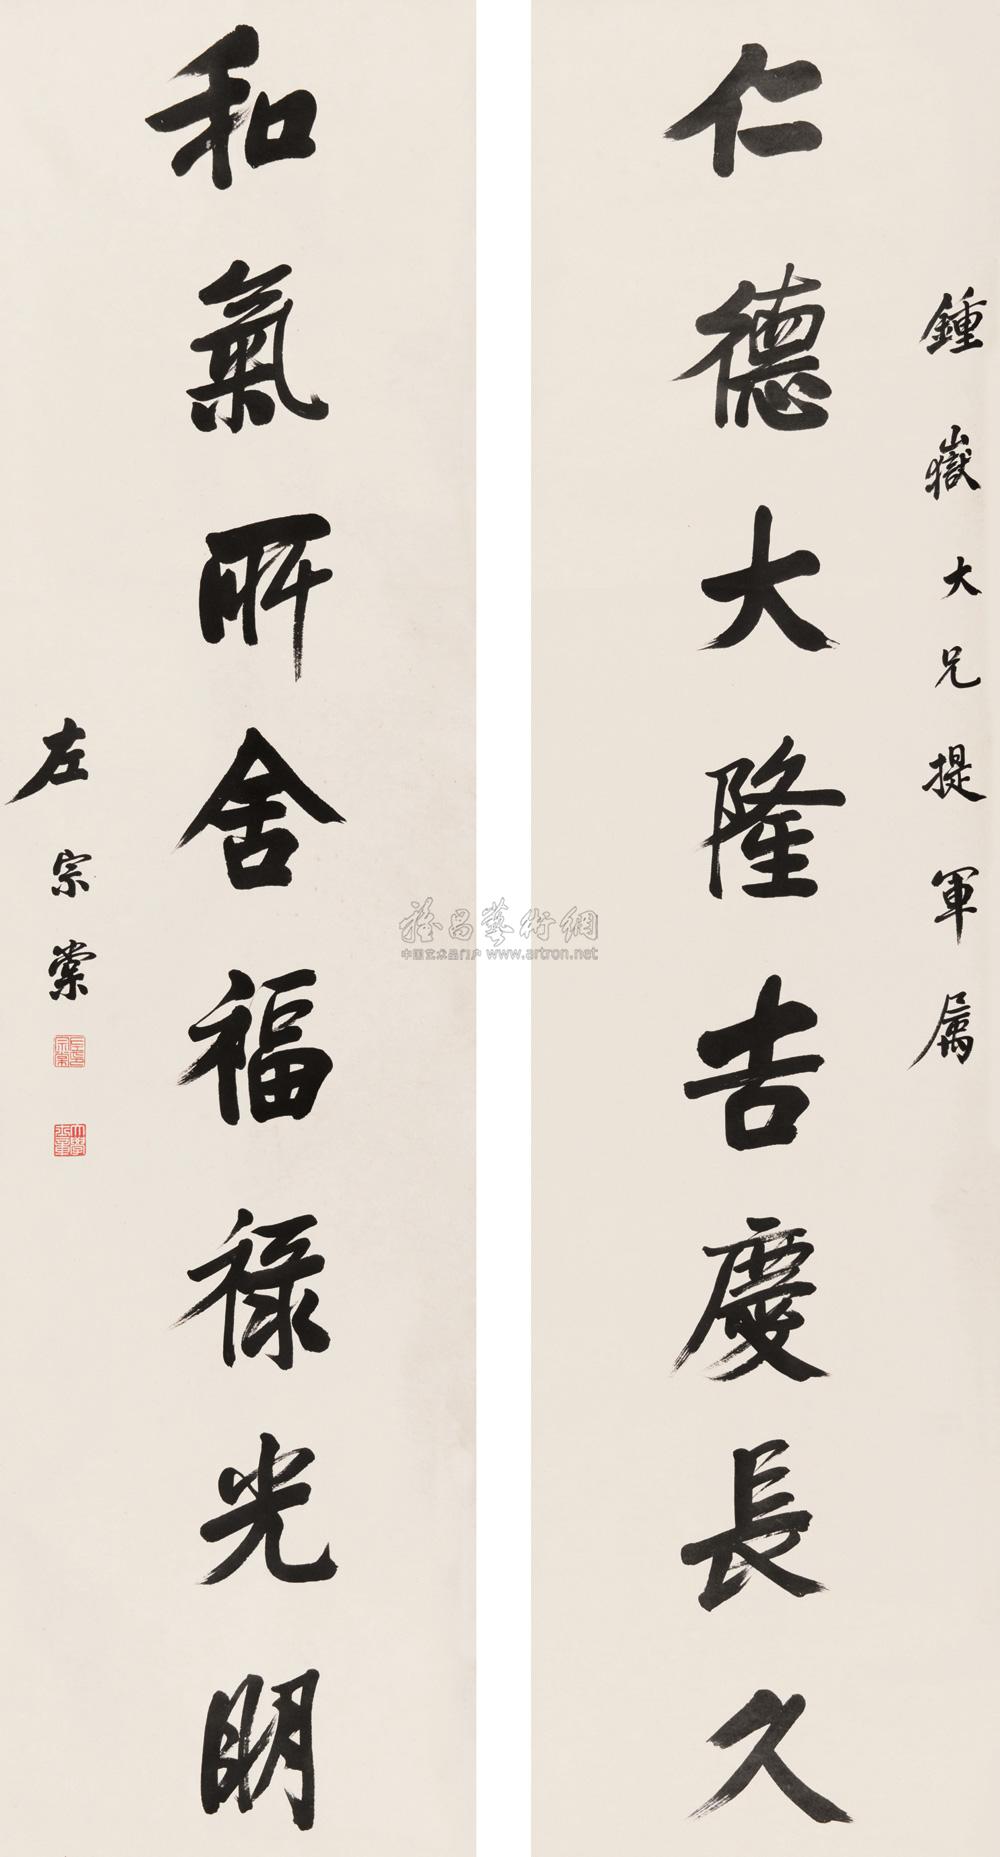 鍾嶽大兄提軍属
仁德大隆吉慶長久
和氣所舍福祿光明
左宗棠
雅昌藝術網
中国艺术品门户 www.artron.net